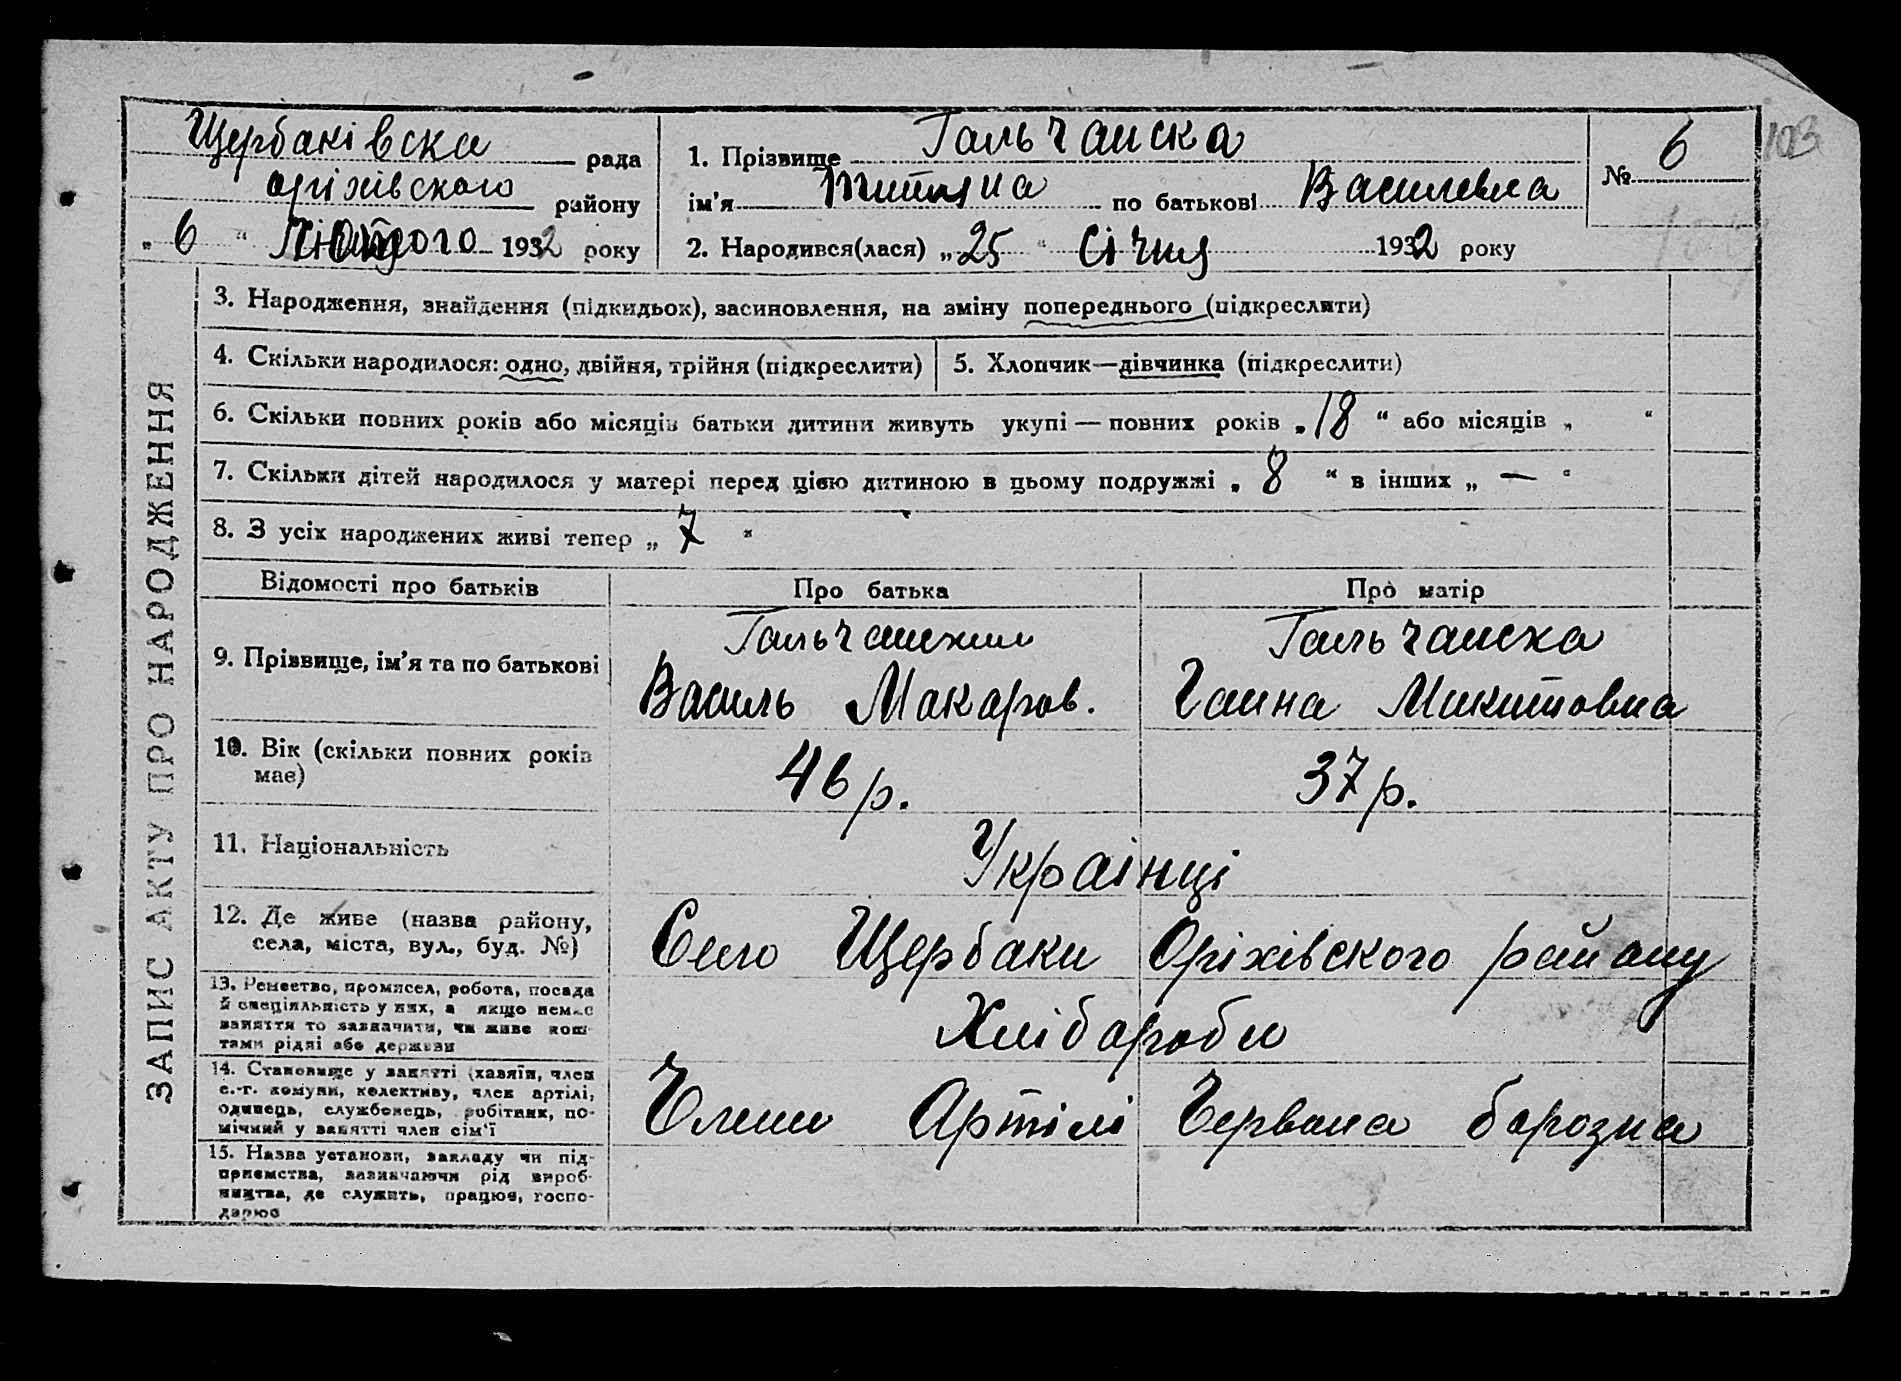 Щербаківска рада
оріхівского району
„ 6 “ Лютого 1932 року
1. Прізвище Гальчанска
ім'я Титяна по батькові Василевна
2. Народився(лася) „ 25 “ Січня 1932 року
№ 6
103
ЗАПИС АКТУ ПРО НАРОДЖЕННЯ
3. Народження, знайдення (підкидьок), засиновлення, на зміну попереднього (підкреслити)
4. Скільки народилося: одно, двійня, трійня (підкреслити)
5. Хлопчик—дівчинка (підкреслити)
6. Скільки повних років або місяців батьки дитини живуть укупі — повних років „ 18 “ або місяців „ “
7. Скільки дітей народилося у матері перед цією дитиною в цьому подружжі „ 8 “ в інших „ — “
8. З усіх народжених живі тепер „ 7 “
Відомості про батьків Про батька Про матір
9. Прізвище, ім'я та по батькові
Гальчанский
Василь Макаров.
Гальчанска
Ганна Микитовна
10. Вік (скільки повних років
має)
46 р.
37 р.
11. Національність
Украінці
12. Де живе (назва району,
села, міста, вул., буд. №)
Село Щербаки Оріхівского району
13. Ремество, промисел, робота, посада
й спеціяльність у них, а якщо немає
заняття то зазначити, чи живе кош-
тами рідні або держави
Хлібароби
14. Становище у занятті (хазяїн, член
с.-г. комуни, колективу, член артілі,
одинець, службовець, робітник, по-
мічний у занятті член сім'ї
Члени Артілі Червона борозна
15. Назва установи, закладу чи під-
приємства, зазначаючи рід вироб-
ництва, де служить, працює, госпо-
дарює